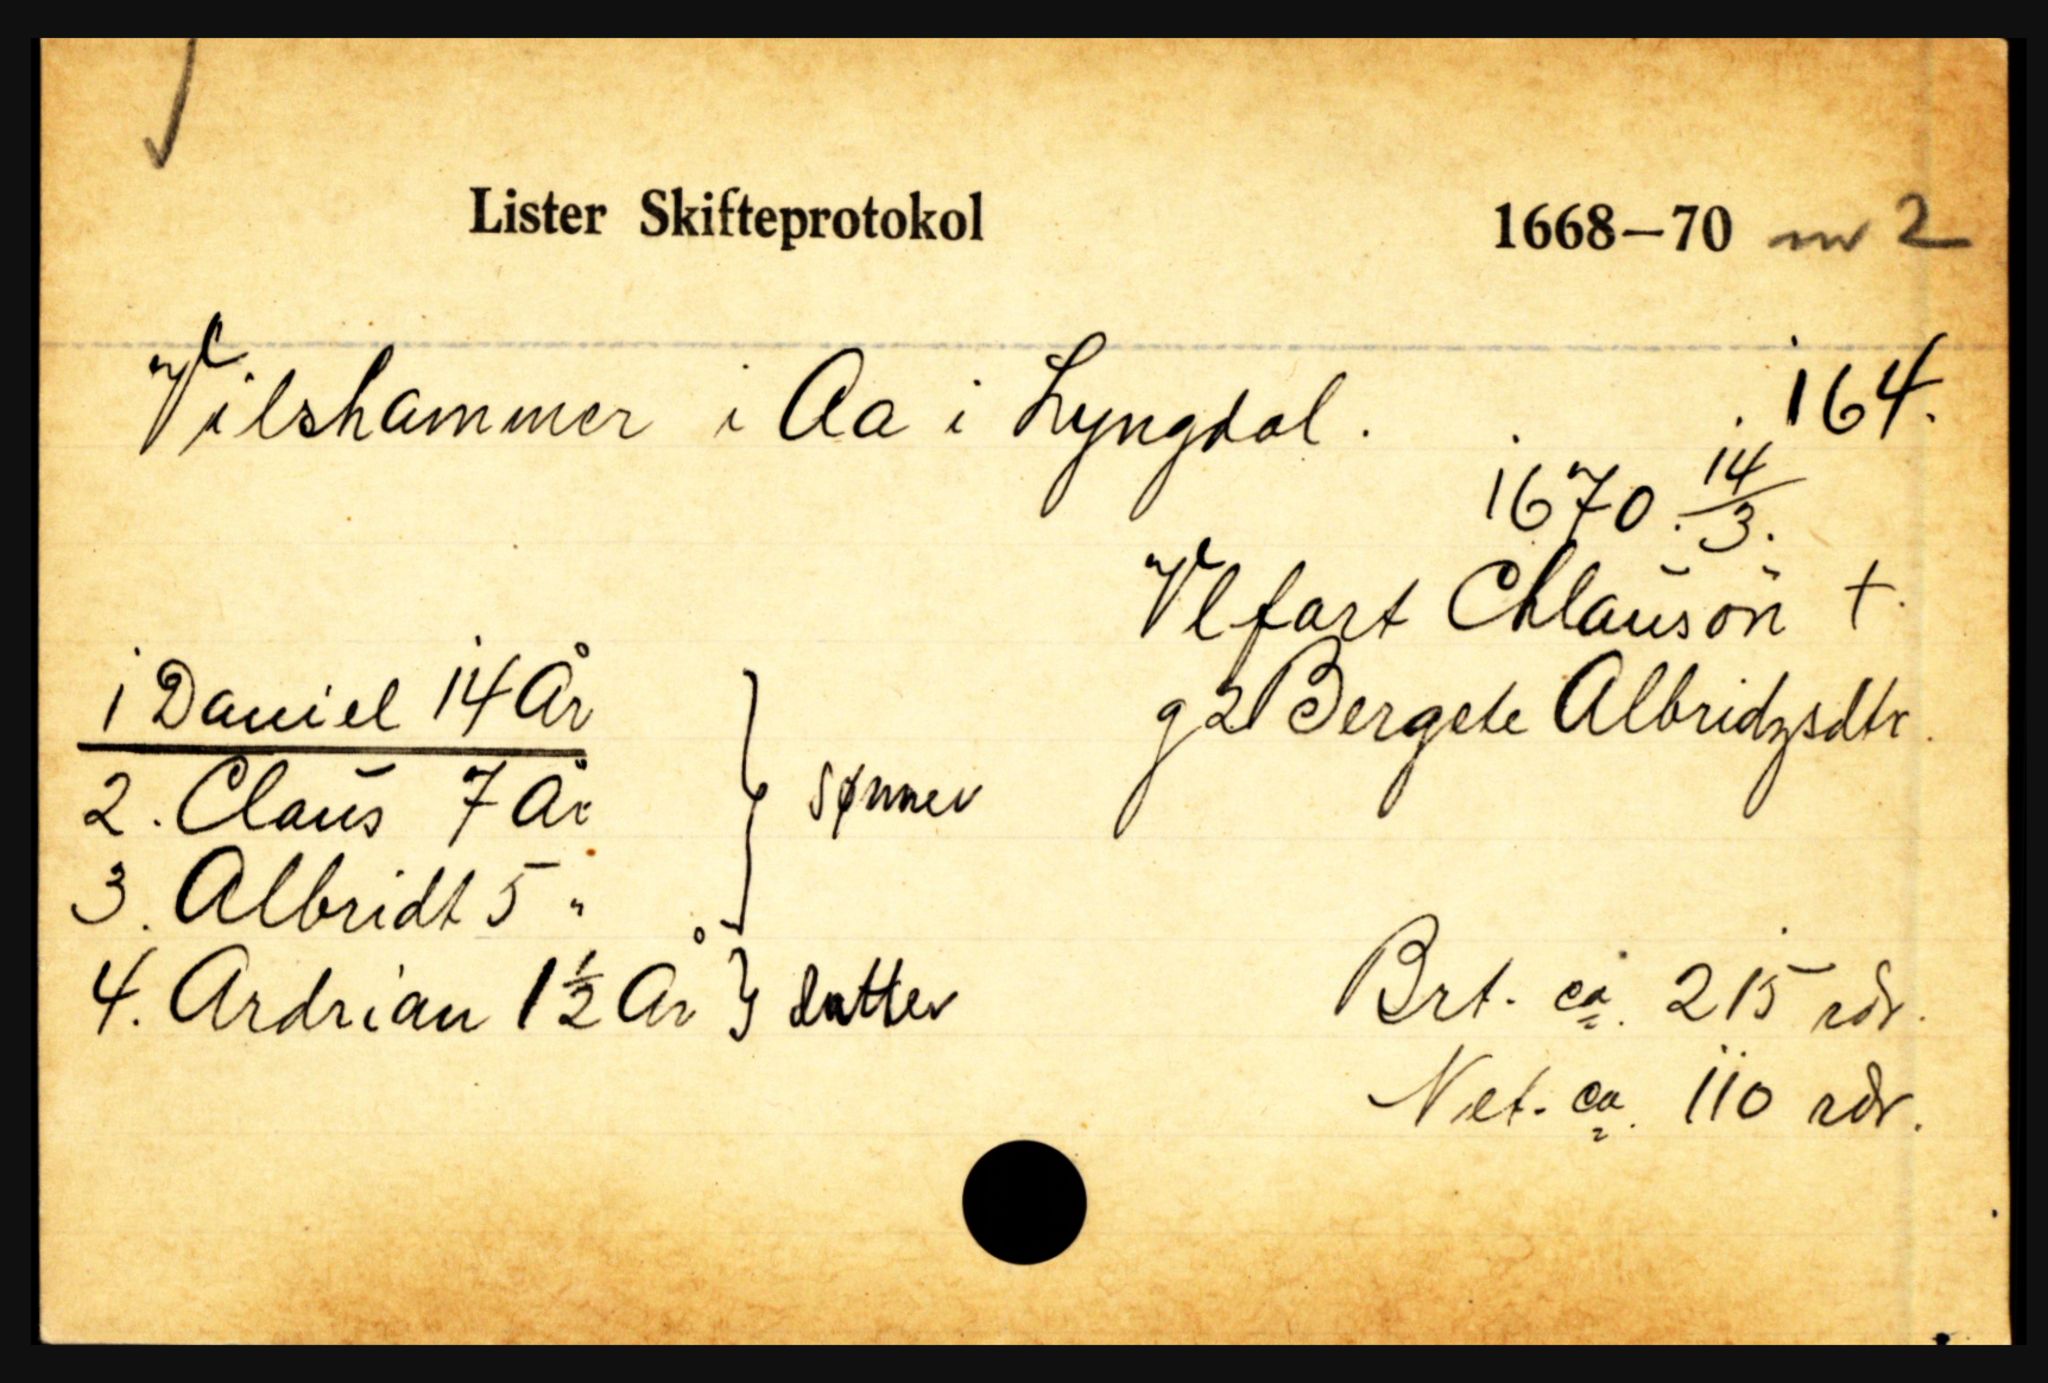 Lister Skifteprotokol 1668—70 nr 2
Vilshammer i Aa i Lyngdal. 164.
1670. 14/3.
Vlfart Chlausøn †.
g 2 Bergete Albridzsdtr.
1 Daniel 14 År
2. Claus 7 År
3. Albridt 5 "
} sønner
4. Ardrian 1 1/2 År } datter
Brt. ca. 215 rdr.
Net. ca. 110 rdr.